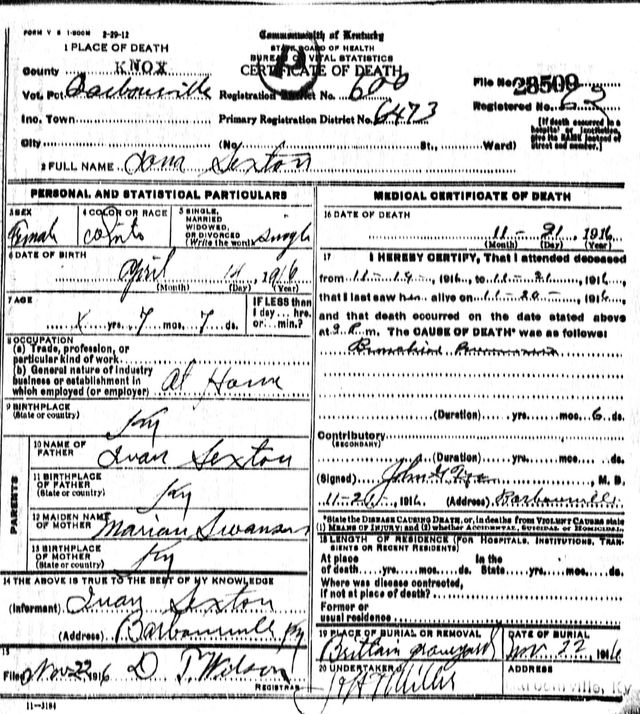 FORM V S 1-500M 2-29-12
Commonwealth of Kentucky
STATE BOARD OF HEALTH
BUREAU OF VITAL STATISTICS
CERTIFICATE OF DEATH
1 PLACE OF DEATH
County KNOX
Vot. Pct Barbourville Registration District No. 600
File No. 28509
Inc. Town Primary Registration District No. 6473
Registered No. 62
City (No. St., Ward)
[If death occurred in a hospital or institution, give its NAME instead of street and number.]
2 FULL NAME Sexton
PERSONAL AND STATISTICAL PARTICULARS
3 SEX Female
4 COLOR OR RACE
5 SINGLE, MARRIED WIDOWED, OR DIVORCED (Write the word) Single
6 DATE OF BIRTH
April 14, 1916
(Month) (Day) (Year)
7 AGE
x yrs. 7 mos. 7 ds.
IF LESS than 1 day... hrs. or... min.?
8 OCCUPATION
(a) Trade, profession, or particular kind of work
(b) General nature of industry business or establishment in which employed (or employer) At Home
9 BIRTHPLACE (State or country) Ky
PARENTS
10 NAME OF FATHER Ivan Sexton
11 BIRTHPLACE OF FATHER (State or country) Ky
12 MAIDEN NAME OF MOTHER Marian
13 BIRTHPLACE OF MOTHER (State or country) Ky
14 THE ABOVE IS TRUE TO THE BEST OF MY KNOWLEDGE
(Informant) Ivan Sexton
(Address) Barbourville Ky
15
Filed Nov 22 1916 D. T. Wilson
REGISTRAR
11-3184
MEDICAL CERTIFICATE OF DEATH
16 DATE OF DEATH
11 - 21, 1916
(Month) (Day) (Year)
17 I HEREBY CERTIFY, That I attended deceased
from 11-19-, 1916, to 11-21, 1916,
that I last saw h alive on 11-20-, 1916,
and that death occurred on the date stated above
at m. The CAUSE OF DEATH* was as follows:
(Duration) yrs. mos. 6 ds.
Contributory
(SECONDARY)
(Duration) yrs. mos. ds.
(Signed) John, M. D.
1916 (Address) Barbourville
*State the DISEASE CAUSING DEATH, or, in deaths from VIOLENT CAUSES state (1) MEANS OF INJURY; and (2) whether ACCIDENTAL, SUICIDAL OR HOMICIDAL.
18 LENGTH OF RESIDENCE (FOR HOSPITALS, INSTITUTIONS, TRANSIENTS OR RECENT RESIDENTS)
At place of death yrs. mos. ds. In the State yrs. mos. ds.
Where was disease contracted, if not at place of death?
Former or usual residence
19 PLACE OF BURIAL OR REMOVAL Brittain Graveyard
DATE OF BURIAL Nov. 22, 1916
20 UNDERTAKER
ADDRESS Barbourville, Ky